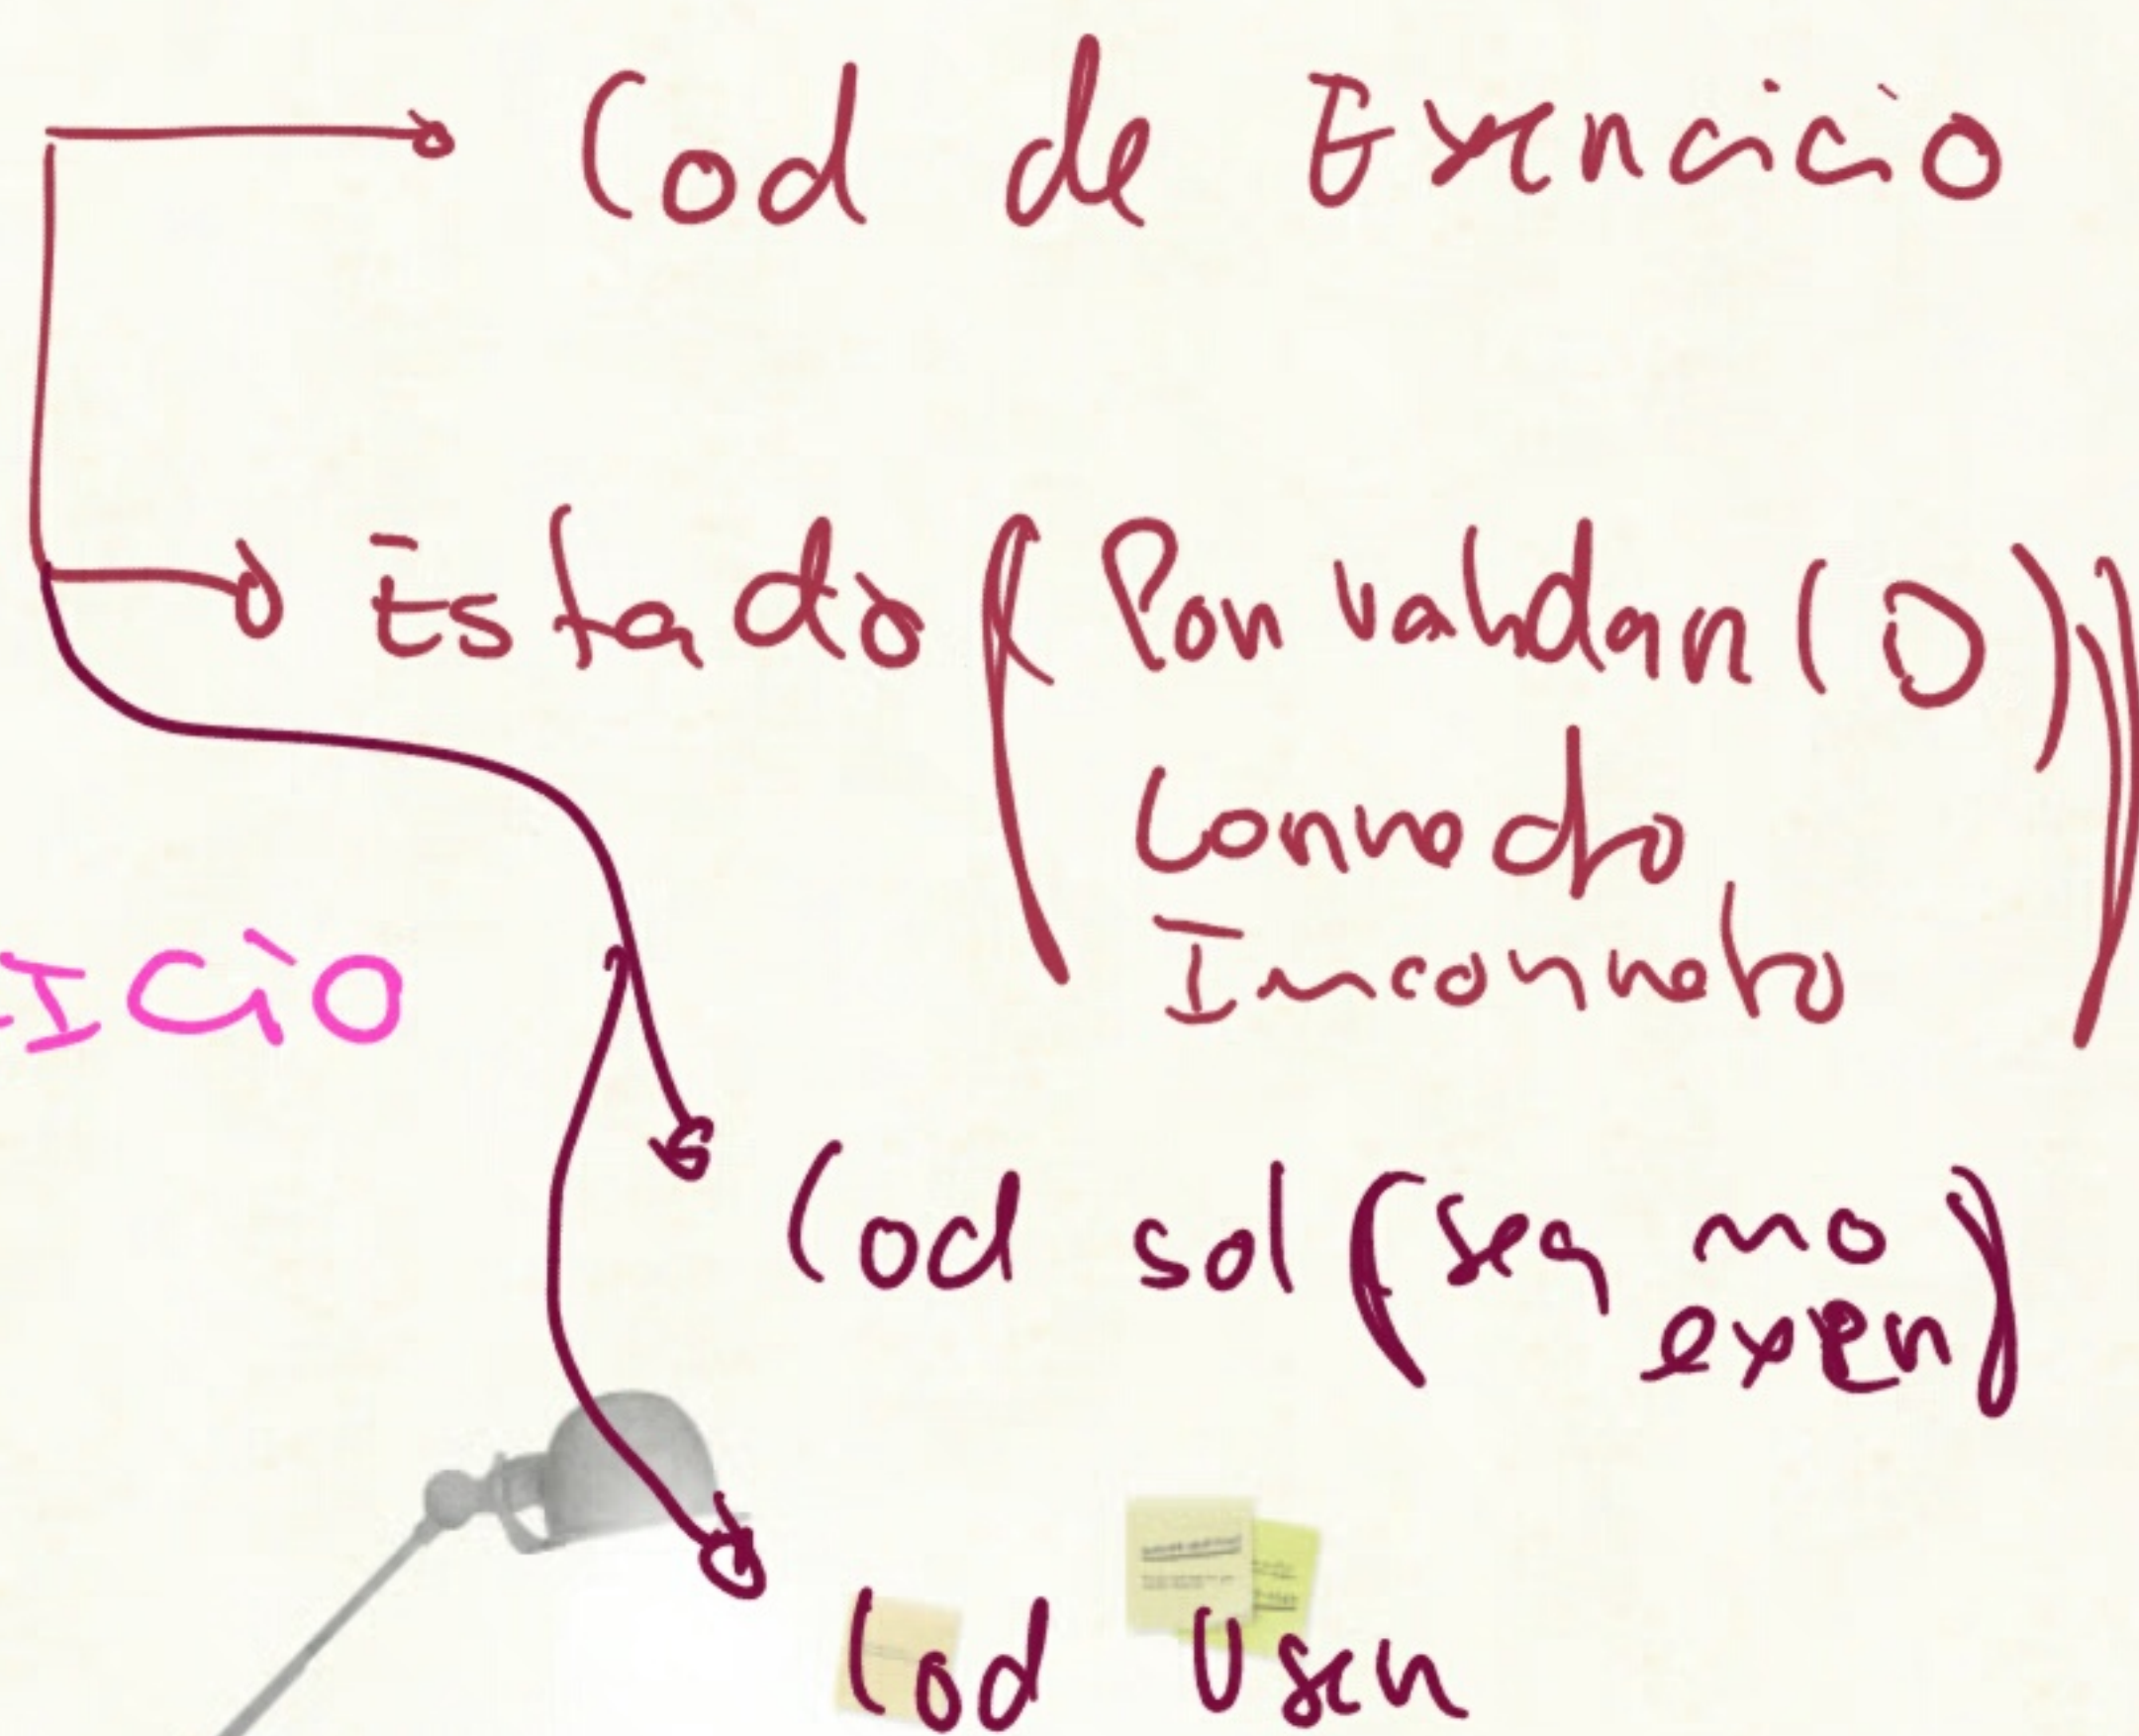 Cod de Exercicio
Estado (Por validar (0))
Correcto
Incorrecto
ICIO
Cod sol (seq no
exer)
Cod User